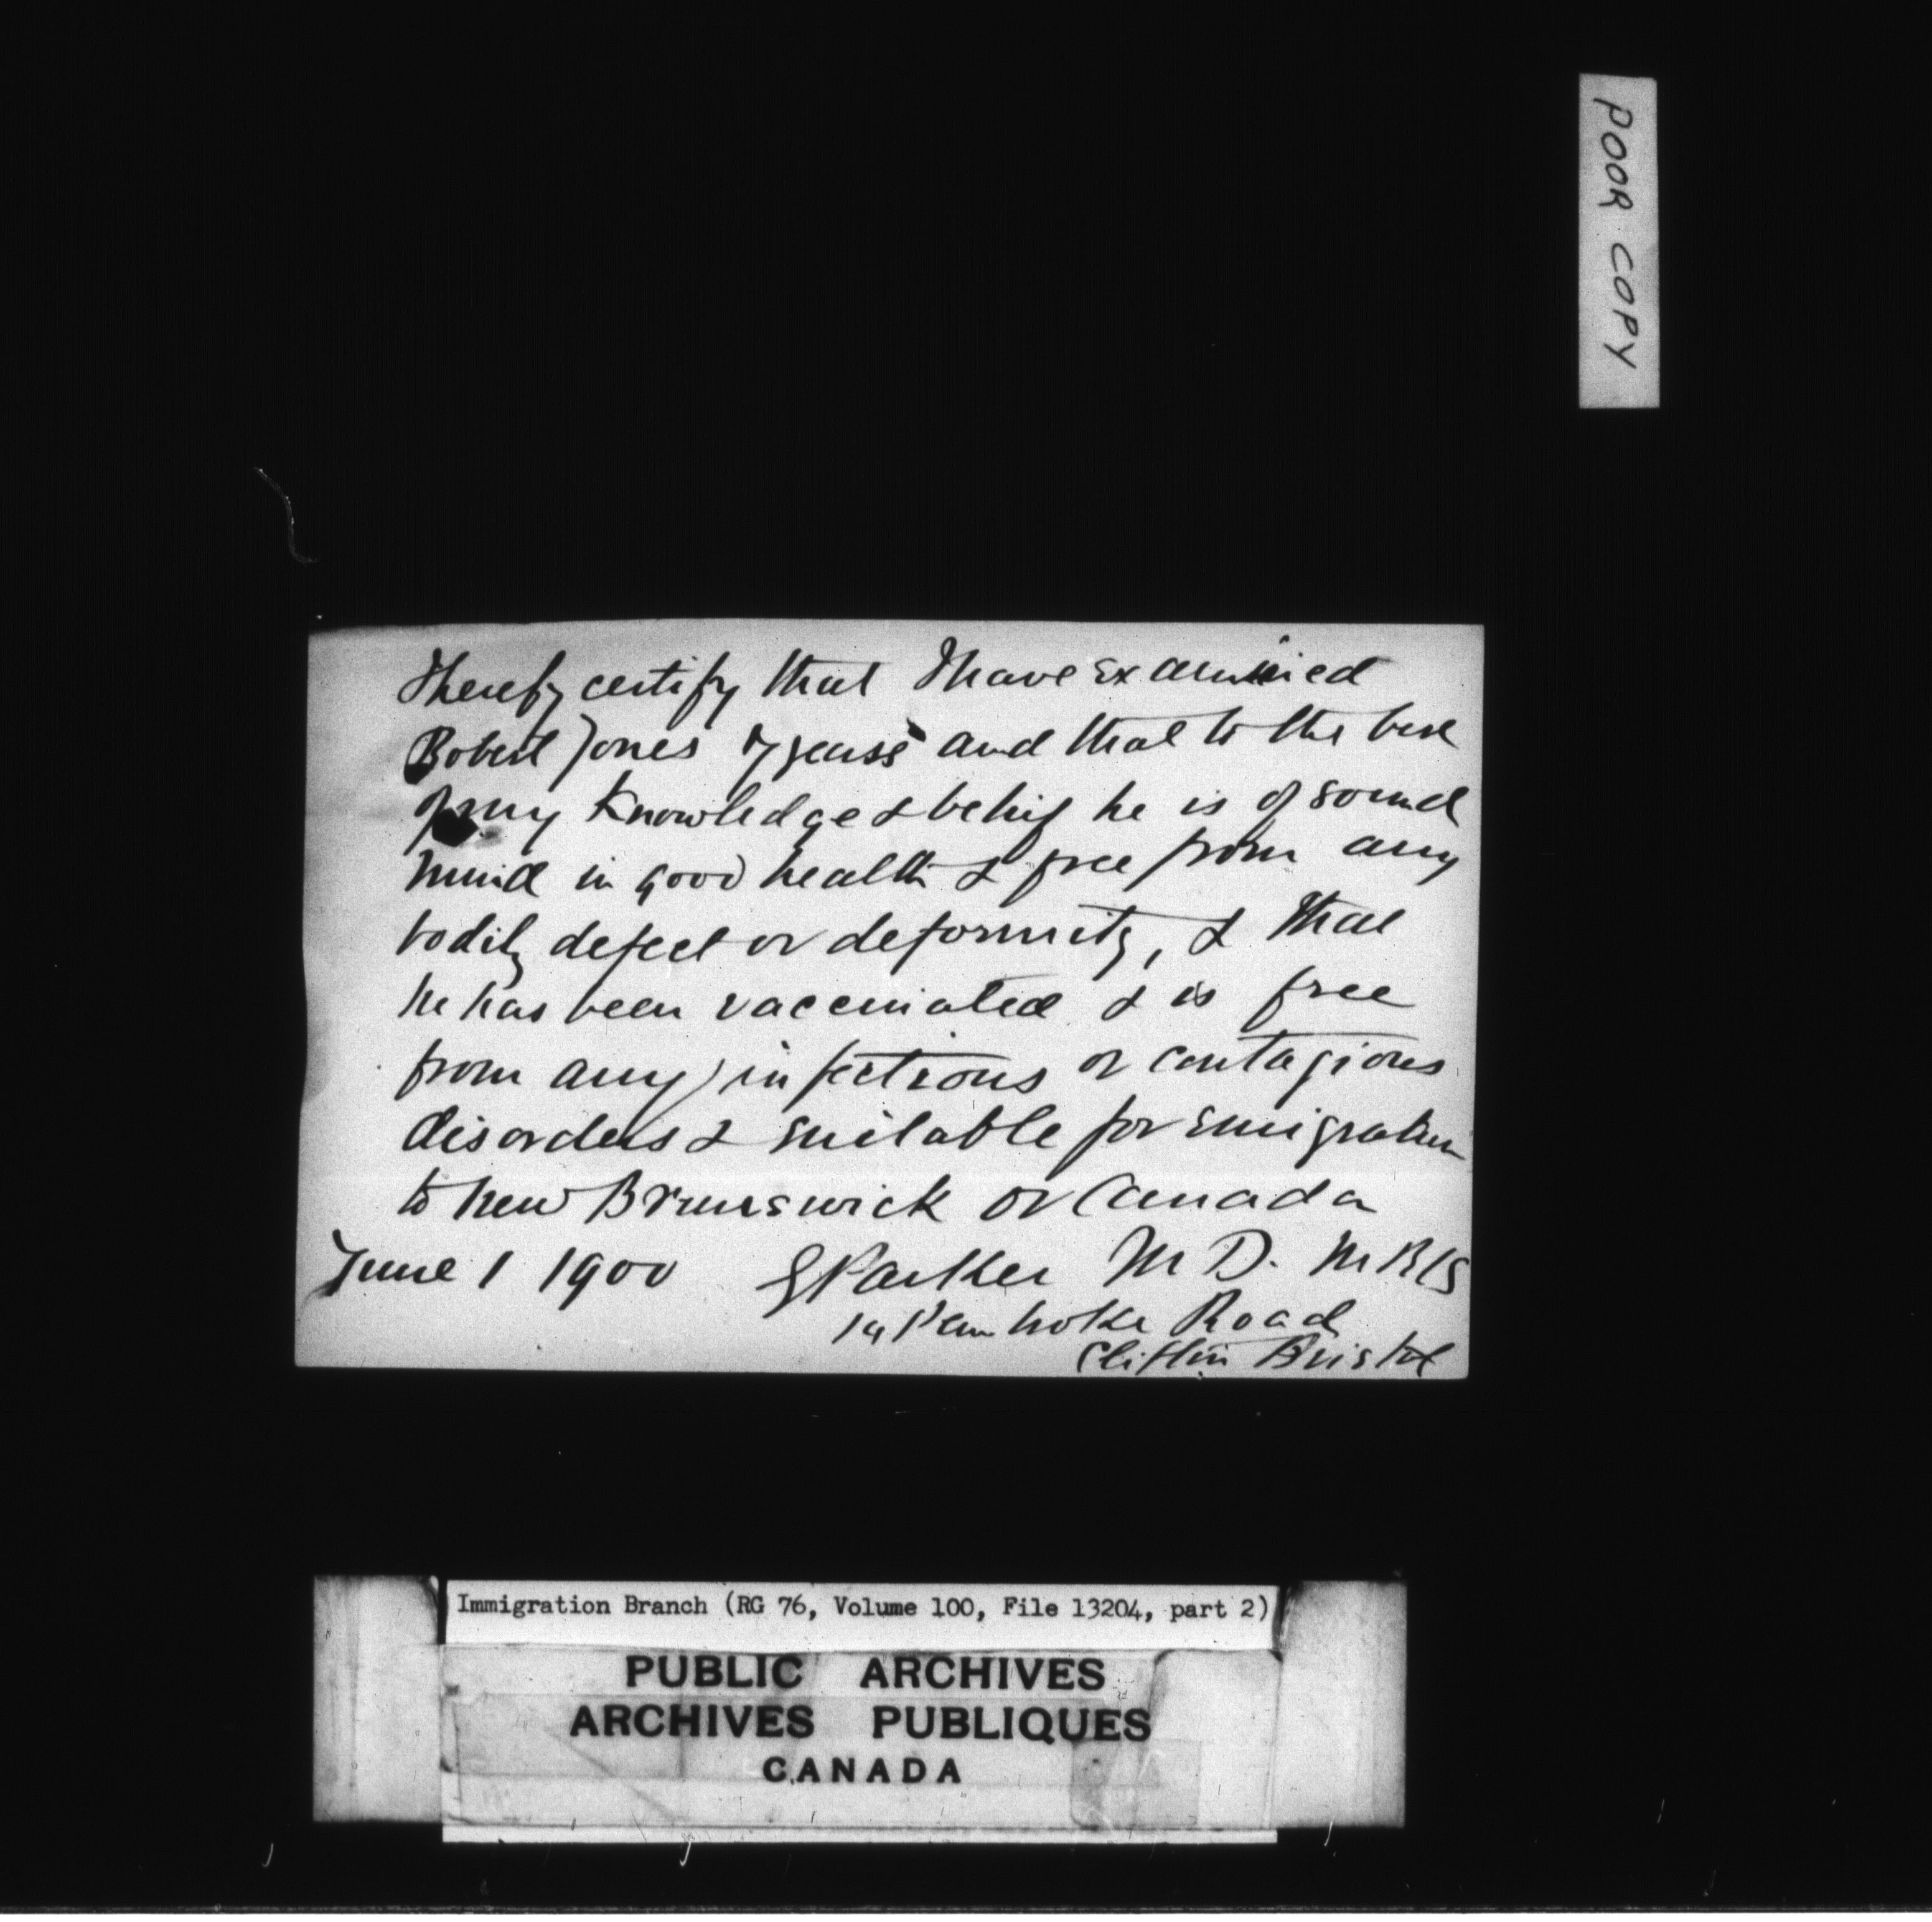 POOR COPY
I hereby certify that I have examined
Robert Jones 7 years and that to the best
of my knowledge & belief he is of sound
mind in good health & free from any
bodily defect or deformity, & that
he has been vaccinated & is free
from any infectious or contagious
disorders & suitable for emigration
to New Brunswick or Canada
June 1 1900 G Parker M D. MRCS
14 Pembroke Road
Clifton Bristol
Immigration Branch (RG 76, Volume 100, File 13204, part 2)
PUBLIC ARCHIVES
ARCHIVES PUBLIQUES
CANADA